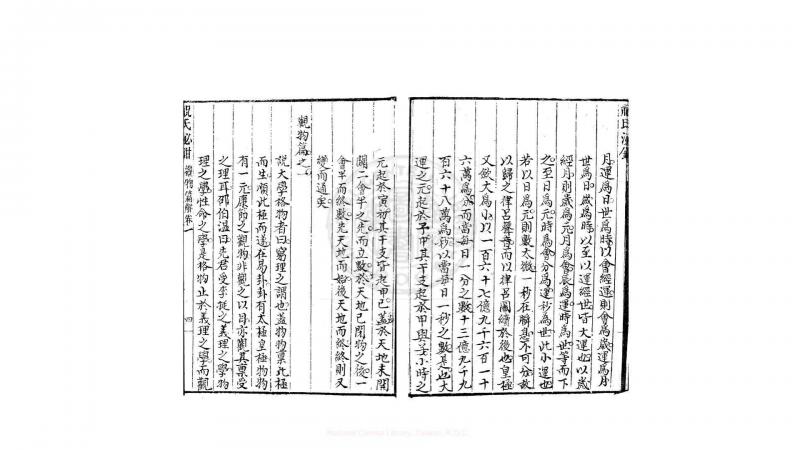 月運為日世為時以會經運則會為歲運為月
世為日歲為時以至以運經世皆大運也以歲
經月則歲為元月為會辰為運時為世等而下
之至日為元時為會分為運秒為世此小運也
若以日為元則數太微一秒在瞬息不可分故
以歸之律呂聲音而以律呂圖續於後也皇極
又斂大為小以一百六十七億九千六百一十
六萬為分而當每日一分之數十三億九千九
百六十八萬為秒以當每日一秒之數是也大
運之元起於子甲其干支起於甲與壬小時之
元起於寅初其干支皆起甲己蓋於天地未開
闢二會半之先而立數於天地已閉物之後一
會半而終數先天地而始後天地而終終則又
變而通矣
觀物篇之一
說大學格物者曰窮理之謂也蓋物物稟此極
而生順此極而遂在易卦卦有太極皇極物物
有一元康節之觀物非觀之以目亦觀其稟受
之理耳邵伯溫曰先君受李挺之義理之學物
理之學性命之學是格物止於義理之學而觀
祝氏秘鉗
觀物篇解卷一
四